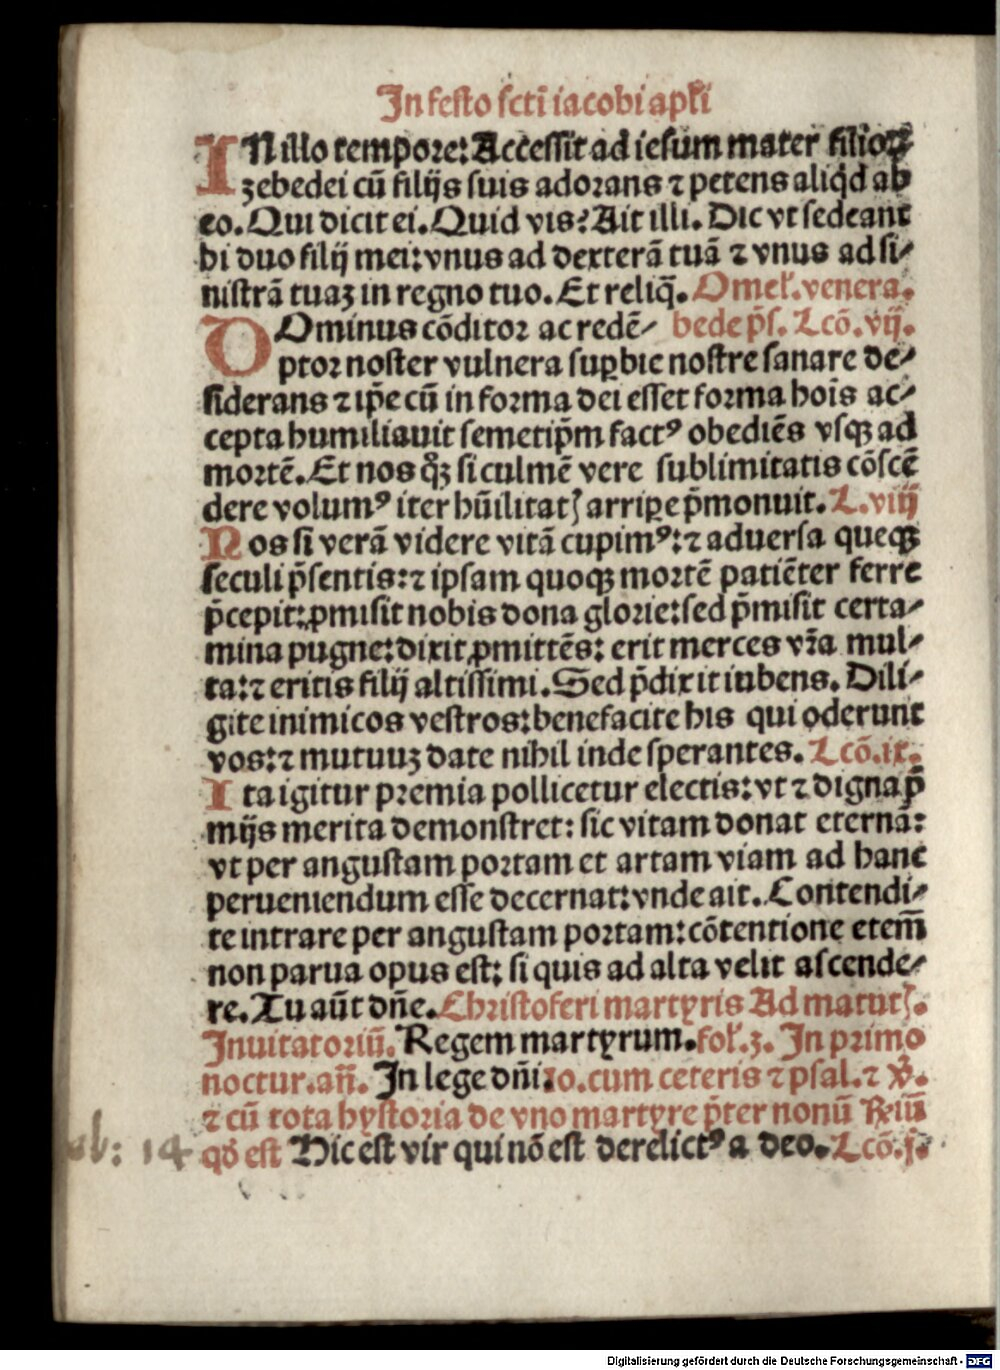 In festo scti iacobi apłi
IN illo tempore: Accessit ad iesum mater filioꝝ
zebedei cū filijs suis adorans ⁊ petens aliqd ab
eo. Qui dicit ei. Quid vis? Ait illi. Dic vt sedeant
hi duo filij mei: vnus ad dexterā tuā ⁊ vnus ad si⸗
nistrā tuaꝫ in regno tuo. Et reliq̄. Omeł. venera.
DOminus cōditor ac redē⸗ bede p̄s. Lcō. vij.
ptor noster vulnera suꝑbie nostre sanare de⸗
siderans ⁊ ip̄e cū in forma dei esset forma hoīs ac⸗
cepta humiliauit semetip̄m factꝰ obediēs vsqꝫ ad
mortē. Et nos qͦꝫ si culmē vere sublimitatis cōscē
dere volumꝰ iter hūilitatꝭ arriꝑe p̄monuit. L. viij
Nos si verā videre vitā cupimꝰ: ⁊ aduersa queqꝫ
seculi p̄sentis: ⁊ ipsam quoqꝫ mortē patiēter ferre
p̄cepit: ꝓmisit nobis dona glorie: sed p̄misit certa⸗
mina pugne: dixit ꝓmittēs: erit merces vr̄a mul⸗
ta: ⁊ eritis filij altissimi. Sed p̄dixit iubens. Dili⸗
gite inimicos vestros: benefacite his qui oderunt
vos: ⁊ mutuuꝫ date nihil inde sperantes. Lcō. ix.
Ita igitur premia pollicetur electis: vt ⁊ digna p̄
mijs merita demonstret: sic vitam donat eternā:
vt per angustam portam et artam viam ad hanc
perueniendum esse decernat: vnde ait. Contendi⸗
te intrare per angustam portam: cōtentione etem̄
non parua opus est: si quis ad alta velit ascende⸗
re. Tu aūt dn̄e. Christoferi martyris Ad matutꝭ.
Inuitatoriū. Regem martyrum. foł. 3. In primo
noctur. an̄. In lege dn̄i. 10. cum ceteris ⁊ psal. ⁊ ℣.
⁊ cū tota hystoria de vno martyre p̄ter nonū ℟iū
qd̄ est Hic est vir qui nō est derelictꝰ a deo. Lcō. j.
ab: 14
Digitalisierung gefördert durch die Deutsche Forschungsgemeinschaft - DFG